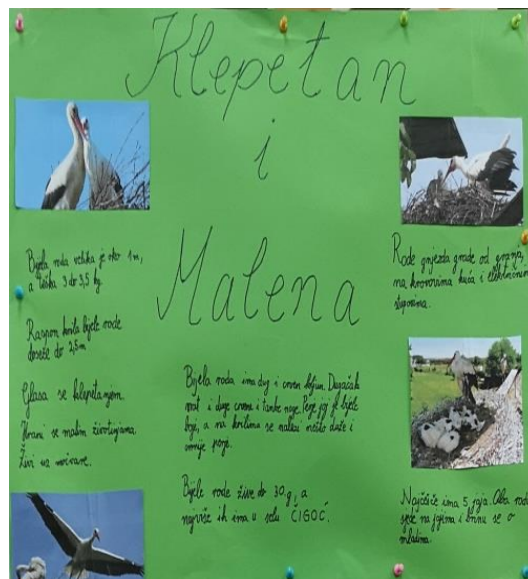 Klepetan
i
Malena
Bijela roda velika je oko 1m,
a teška 3 do 3,5 kg.
Raspon krila bijele rode
doseže do 2,5m
Glasa se klepetanjem.
Hrani se malim životinjama.
Živi uz močvare.
Bijela roda ima dug i crven kljun. Dugačak
vrat i duge crvene i tanke noge. Perje joj je bijele
boje, a na krilima se nalazi nešto duže i
crnije perje.
Bijele rode žive do 30 g, a
najviše ih ima u selu ČIGOĆ.
Rode gnijezda grade od granja,
na krovovima kuća i električnim
stupovima.
Najčešće ima 5 jaja. Oba roda
sjede na jajima i brinu se o
mladima.